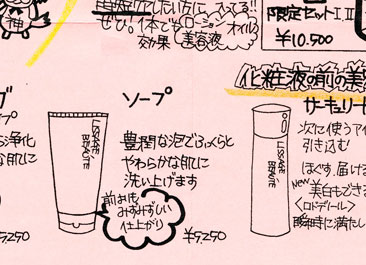 神
したい方に
ぜひ。1本でもローション オイル
効果 美容液
限定セットⅠⅡ
¥10.500
化粧液の前の美
グ
浄化
な肌に
5250
LISSAGE
BEAUTE
ソープ
豊潤な泡でふっくらと
やわらかな肌に
洗い上げます
前よりも
みずみずしい
仕上がり
¥5250
LISSAGE
BEAUTE
サーキュリー
次に使うアイ
引き込む
ほぐす.届ける
New 美白もでき
〈ロドデール〉
瞬時に満たし